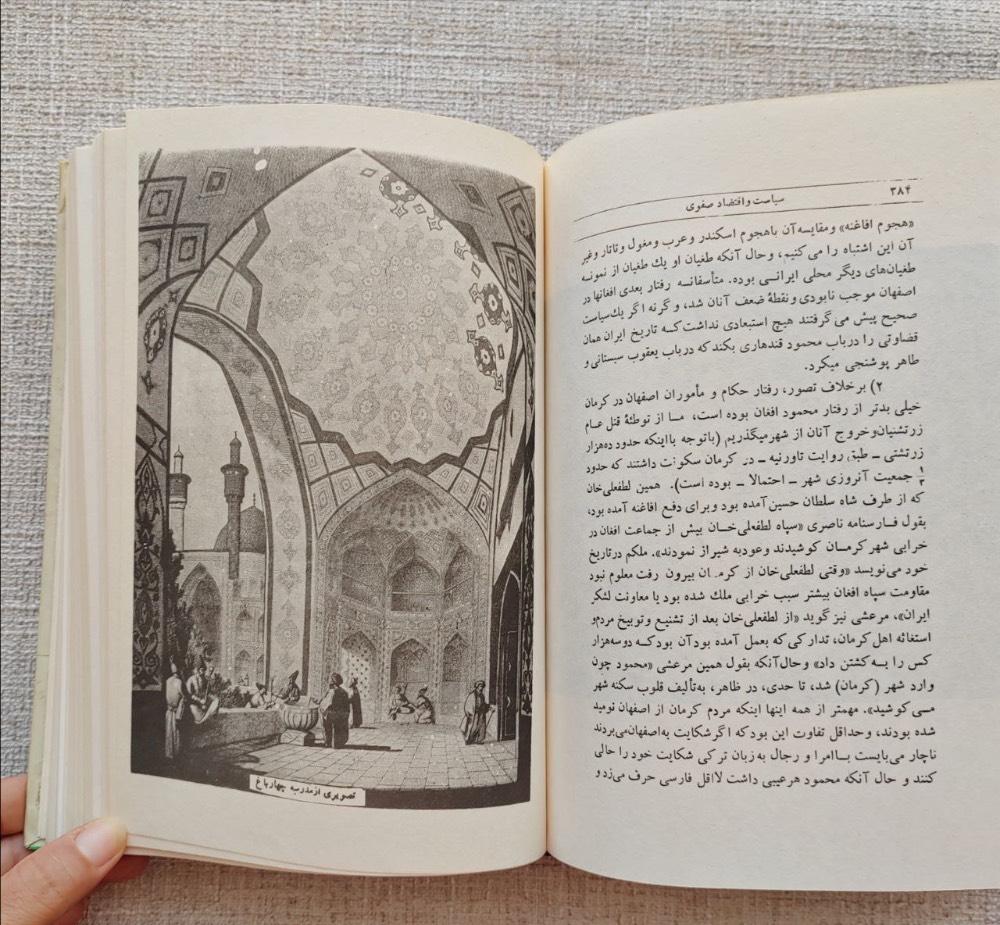 ۳۸۴
سیاست و اقتصاد صفوی
«هجوم افاغنه» ومقایسه‌آن باهجوم اسکندر وعرب ومغول وتاتار وغیر
آن این اشتباه را می‌کنیم، وحال آنکه طغیان او یك طغیان از نمونه
طغیان‌های دیگر محلی ایرانی بوده. متأسفانه رفتار بعدی افغانها در
اصفهان موجب نابودی ونقطهٔ ضعف آنان شد، و گرنه اگر یك‌سیاست
صحیح پیش می‌گرفتند هیچ استبعادی نداشت‌که تاریخ ایران همان
قضاوتی را درباب محمود قندهاری بکند که درباب یعقوب سیستانی و
طاهر پوشنجی میکرد.
۲) برخلاف تصور، رفتار حکام و مأموران اصفهان در کرمان
خیلی بدتر از رفتار محمود افغان بوده است، ما از توطئهٔ قتل عام
زرتشتیان‌وخروج آنان از شهرمیگذریم (باتوجه بااینکه حدود ده‌هزار
زرتشتی ـ طبق روایت تاورنیه ـ در کرمان سکونت داشتند که حدود
جمعیت آنروزی شهر ـ احتمالا ـ بوده است). همین لطفعلی‌خان
که از طرف شاه سلطان حسین آمده بود وبرای دفع افاغنه آمده بود،
بقول فارسنامه ناصری «سپاه لطفعلی‌خان بیش از جماعت افغان در
خرابی شهر کرمان کوشیدند وعودبه شیراز نمودند». ملکم درتاریخ
خود می‌نویسد «وقتی لطفعلی‌خان از کرمان بیرون رفت معلوم نبود
مقاومت سپاه افغان بیشتر سبب خرابی ملك شده بود یا معاونت لشکر
ایران»، مرعشی نیز گوید «از لطفعلی‌خان بعد از تشنیع وتوبیخ مردم‌و
استغاثه اهل کرمان، تدارکی که بعمل آمده بودآن بودکه دوسه‌هزار
کس را به کشتن داد» وحال‌آنکه بقول همین مرعشی «محمود چون
وارد شهر (کرمان) شد، تا حدی، در ظاهر، به‌تألیف قلوب سکنه شهر
می‌کوشید». مهمتر از همه اینها اینکه مردم کرمان از اصفهان نومید
شده بودند، وحداقل تفاوت این بودکه اگرشکایت به‌اصفهان‌می‌بردند
ناچار می‌بایست باامرا و رجال به‌زبان ترکی شکایت خود را حالی
کنند و حال آنکه محمود هرعیبی داشت لااقل فارسی حرف می‌زد و
تصویری ازمدرسه چهارباغ